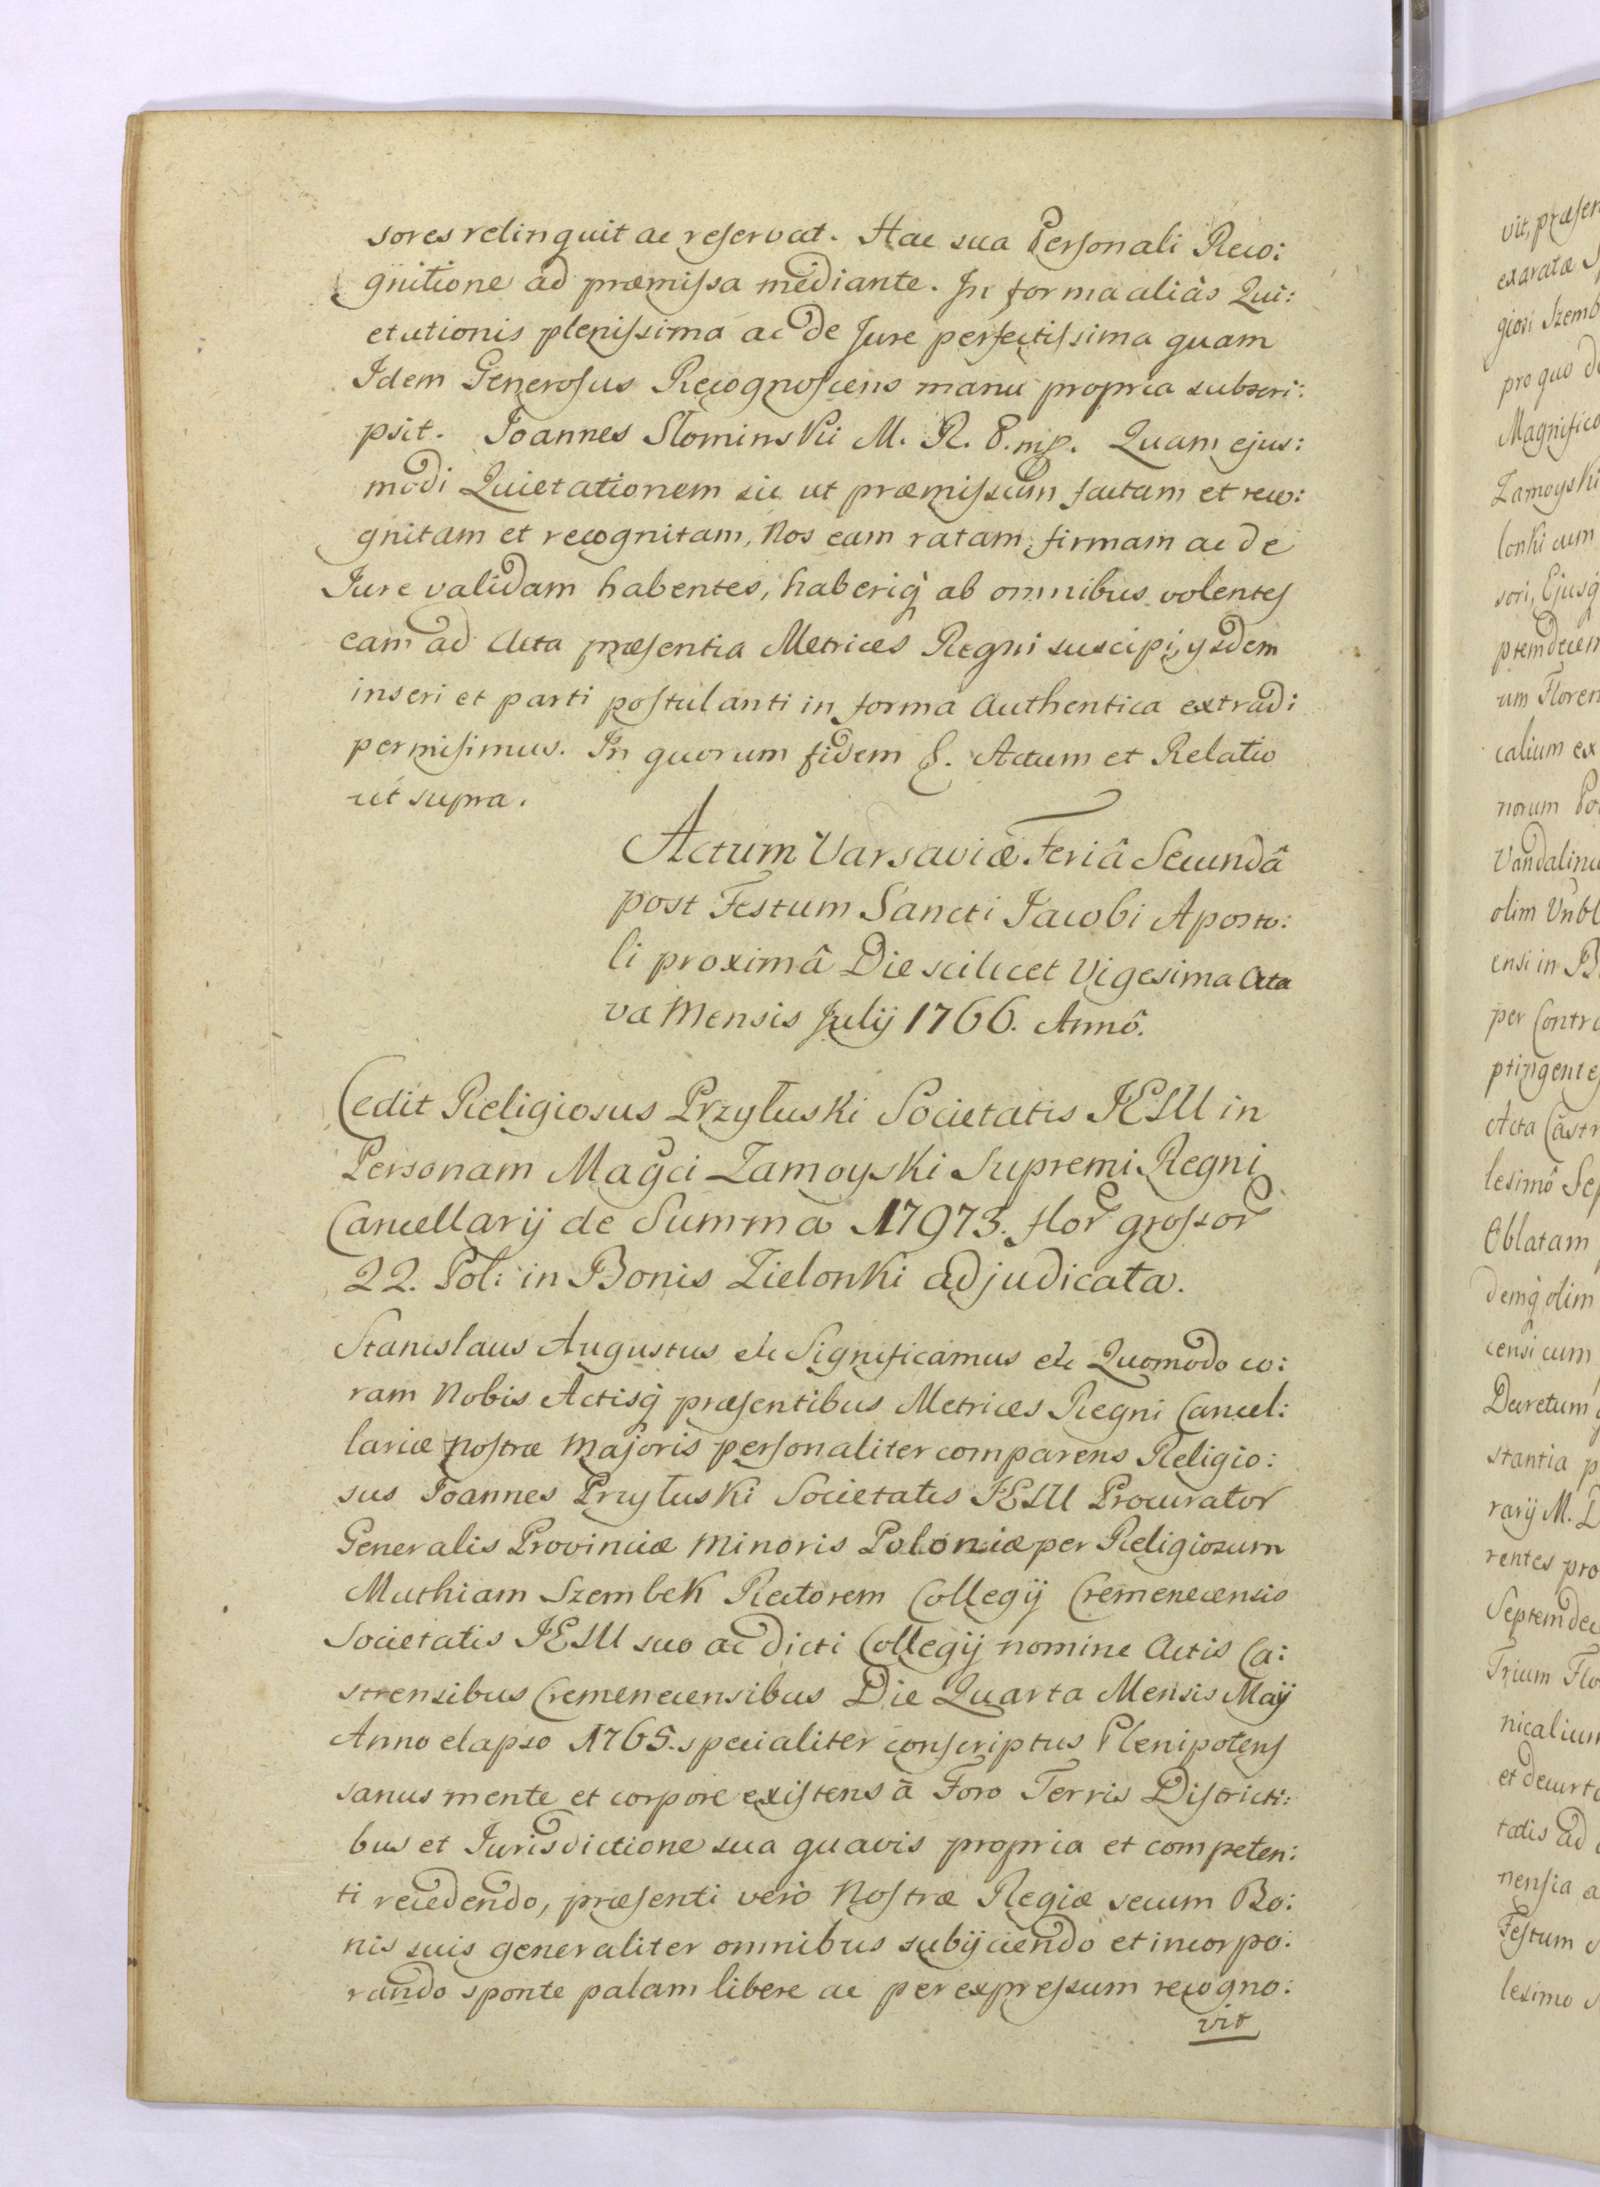 sores relinquit ac reservat. Hac sua Personali Reco:
gnitione ad præmissa mediante. In forma aliàs Qui:
etationis plenissima ac de Jure perfectissima quam
Idem Generosus Recognoscens manu propria subscri:
psit. Joannes Słominski M. R. P. mp. Quam ejus:
modi Quietationem sic ut præmissum factam et reco:
gnitam et recognitam, Nos eam ratam, firmam ac de
Jure validam habentes, haberiq ab omnibus volentes
eam ad Acta præsentia Metrices Regni suscipi, ysdem
inseri et parti postulanti in forma Authentica extradi
permisimus. In quorum fidem &. Actum et Relatio
ut supra.
Actum Varsaviæ Feriâ Secundâ
post Festum Sancti Jacobi Aposto:
li proximâ Die scilicet Vigesima Octa
va Mensis Julij 1766. Annô.
Cedit Religiosus Przyłuski Societatis JESU in
Personam Magci Zamoyski Supremi Regni
Cancellarij de Summa 17973. flor grossor
22. Pol: in Bonis Zielonki adjudicata.
Stanislaus Augustus etc Significamus etc Quomodo co:
ram Nobis Actisq præsentibus Metrices Regni Cancel:
lariæ Nostræ Majoris personaliter comparens Religio:
sus Joannes Przyłuski Societatis JESU Procurator
Generalis Provinciæ Minoris Poloniæ per Religiosum
Mathiam Szembek Rectorem Collegij Cremenecensis
Societatis JESU suo ac dicti Collegij nomine Actis Ca:
strensibus Cremenecensibus Die Quarta Mensis Maij
Anno elapso 1765. specialiter conscriptus Plenipotens
sanus mente et corpore existens à Foro Terris Districti:
bus et Jurisdictione sua quavis propria et competen:
ti recedendo, præsenti verò Nostræ Regiæ secum Bo:
nis suis generaliter omnibus subijciendo et incorpo:
rando sponte palam libere ac per expressum recogno:
vit
vit, præsen
exaratæ
giosi Szemb
pro quo
Magnifico
Zamoyski
lonki cum
sori, Ejusq
ptemdecem
um Floren
calium ex
norum Po
Vandalinu
olim
ensi in B
per Contra
ptingentes
Acta Castr
lesimô Sep
Oblatam
demq olim
censi cum
Decretum
stantia p
rarij M.
rentes pro
Septemdec
Trium Flo
nicalium
et decurt
tatis ad
nensia a
Festum
lesimo